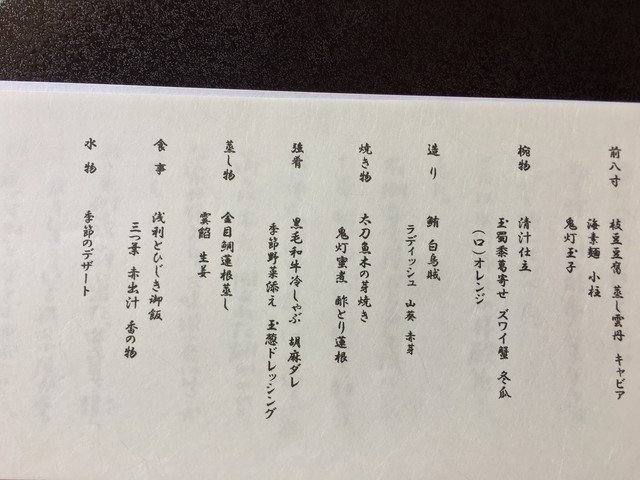 前八寸 枝豆豆腐 蒸し雲丹 キャビア
海素麺 小柱
鬼灯玉子
椀物 清汁仕立
玉蜀黍葛寄せ ズワイ蟹 冬瓜
(口)オレンジ
造り 鮪 白烏賊
ラディッシュ 山葵 赤芽
焼き物 太刀魚木の芽焼き
鬼灯蜜煮 酢どり蓮根
強肴 黒毛和牛冷しゃぶ 胡麻ダレ
季節野菜添え 玉葱ドレッシング
蒸し物 金目鯛蓮根蒸し
雲餡 生姜
食事 浅利とひじき御飯
三つ葉 赤出汁 香の物
水物 季節のデザート